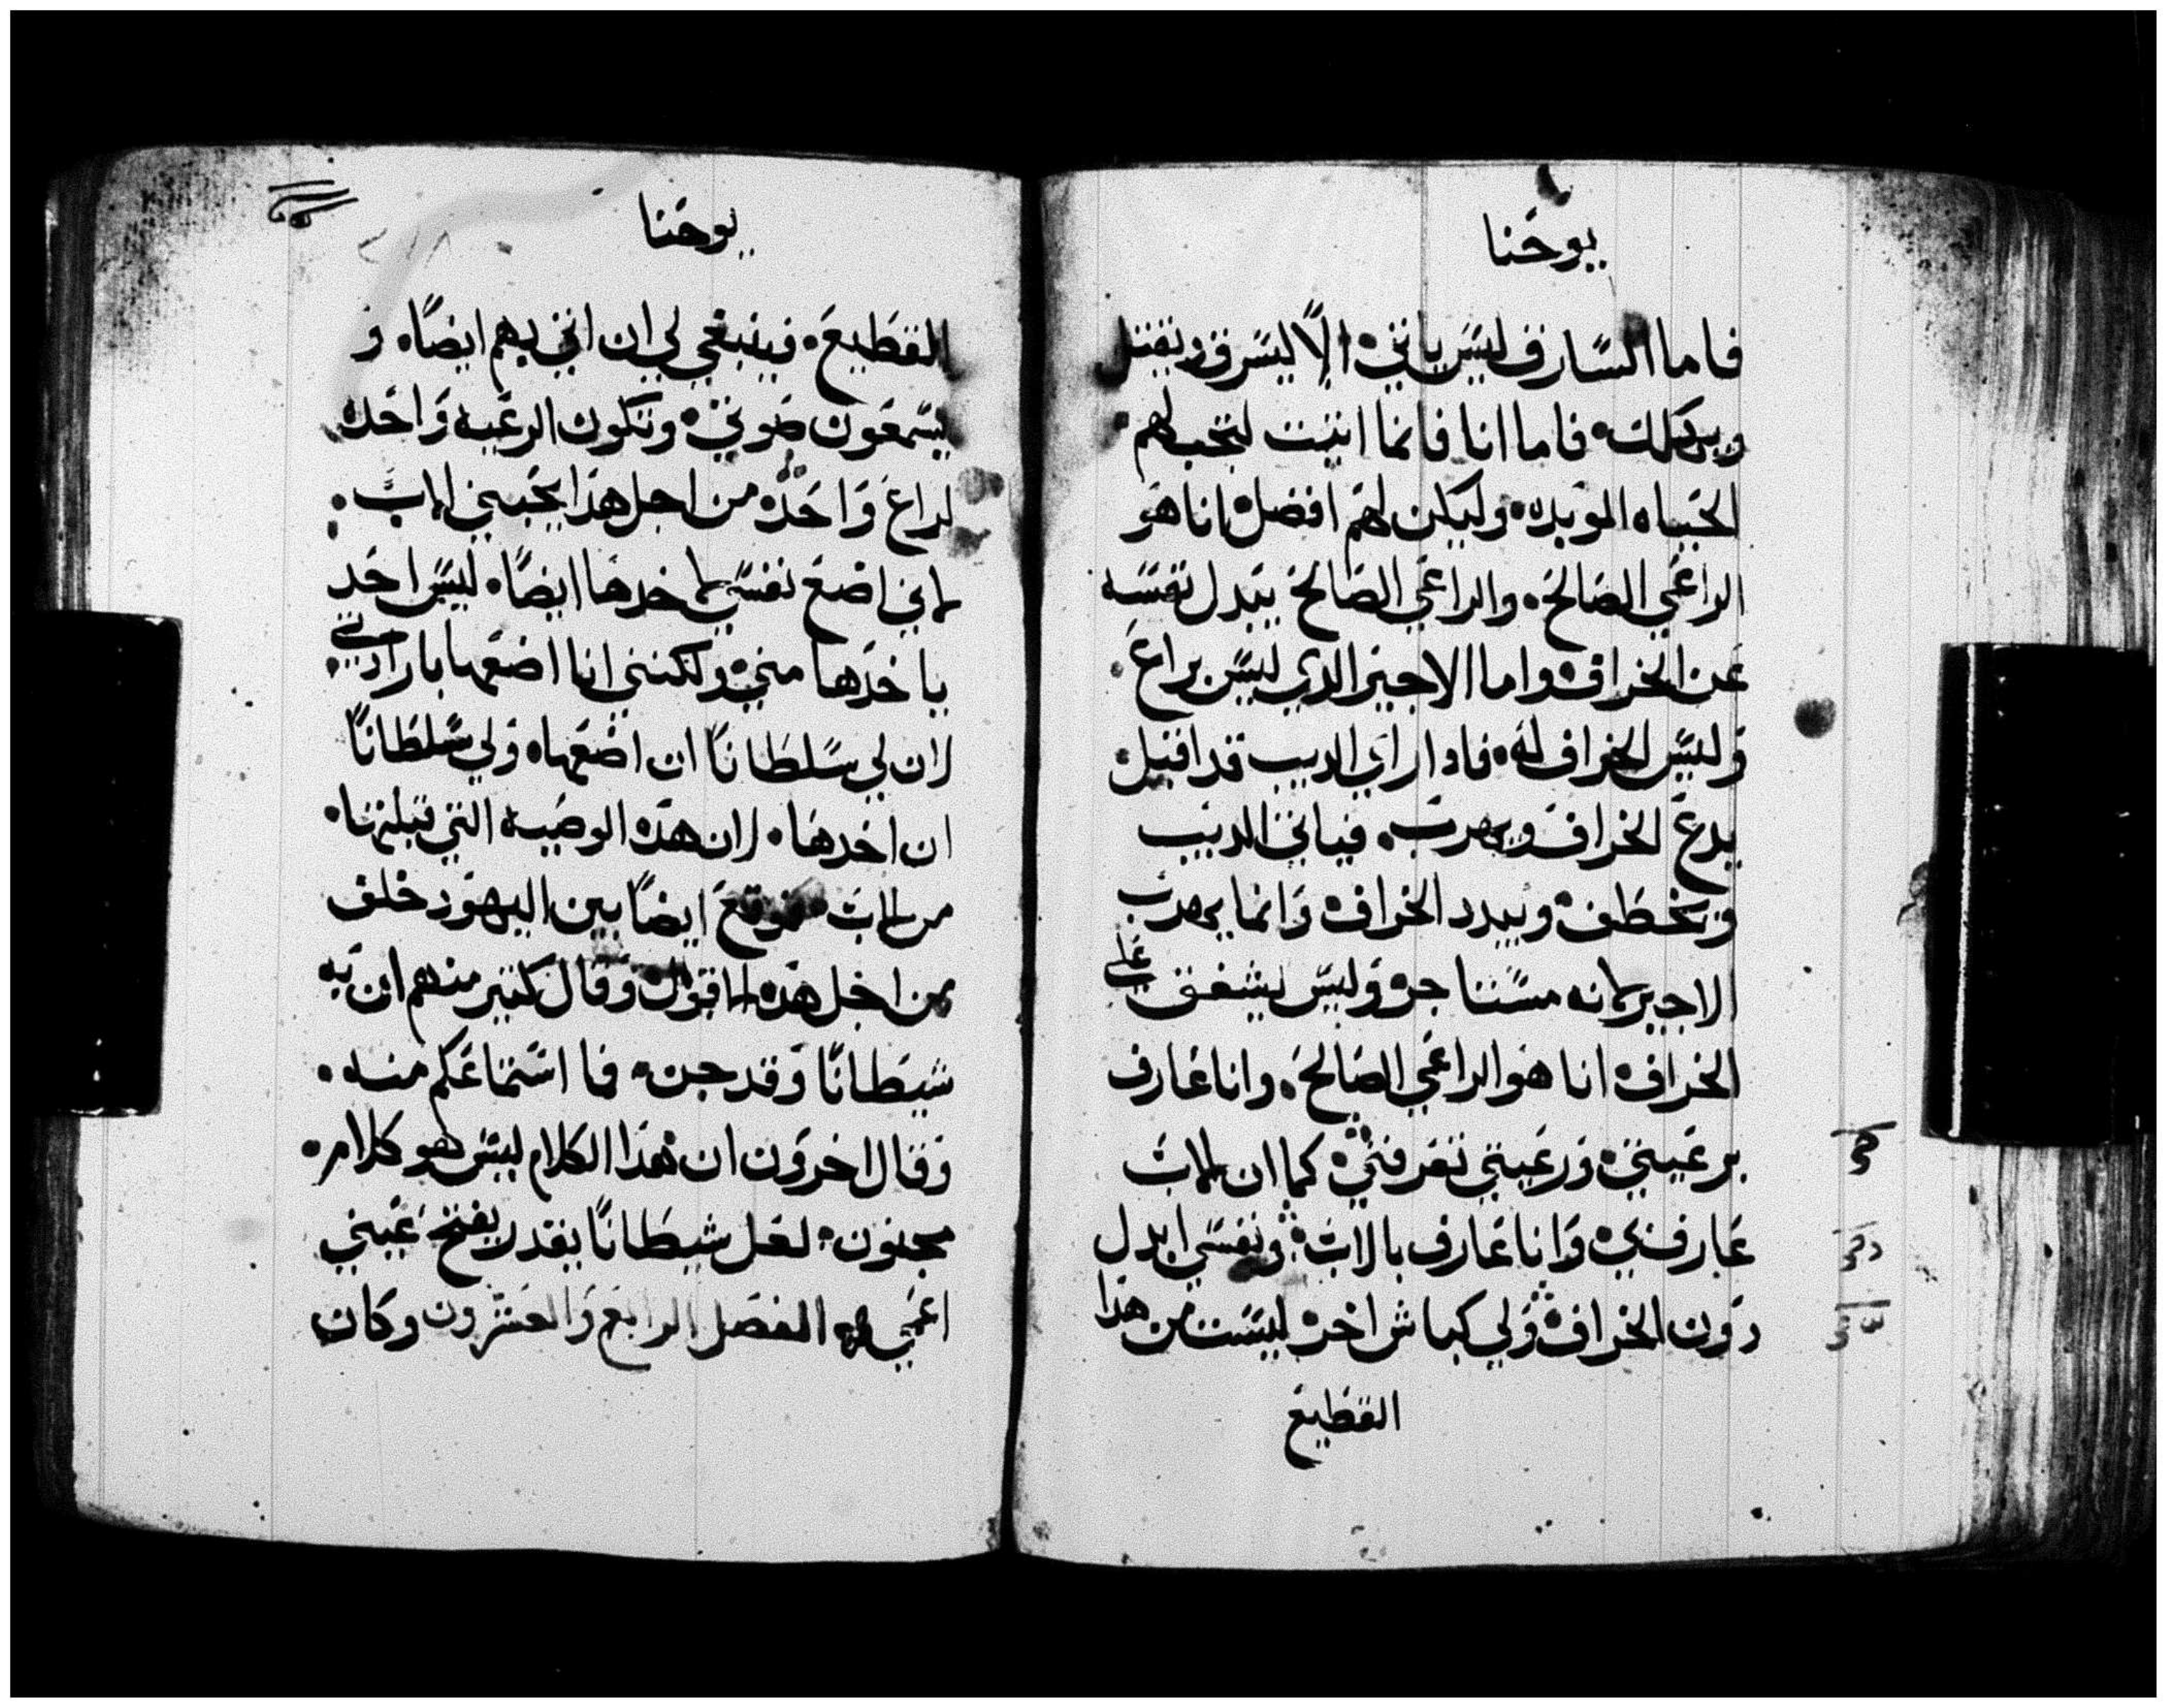 يوحنا
فاما السارق ليس ياتي الا ليسرق ويقتل
ويهلك فاما انا فانما اتيت لتجب لهم
الحياه الموبده وليكن لهم افضل انا هو
الراعي الصالح والراعي الصالح يبدل نفسه
عن الخراف واما الاجير الدي ليس براع
وليس الخراف له فادا راي الديب قد اقبل
يدع الخراف ويهرب فياتي الديب
ويخطف ويبدد الخراف وانما يهرب
الاجير لانه مستاجر وليس يشفق علي
الخراف انا هو الراعي الصالح وانا عارف
برعيتي ورعيتي تعرفني كما ان الاب
عارف بي وانا عارف بالاب ونفسي ابدل
دون الخراف ولي كباش اخر ليست من هدا
القطيع
يوحنا
القطيع فينبغي لي ان اتي بهم ايضا و
يسمعون صوتي وتكون الرعيه واحده
لراع واحد من اجل هدا يحبني الاب
لاني اضع نفسي لاخدها ايضا ليس احد
ياخدها مني ولكنني انا اضعها بارادتي
لان لي سلطانا ان اضعها ولي سلطانا
ان اخدها لان هده الوصيه التي قبلتها
من الاب فوقع ايضا بين اليهود خلف
من اجل هده الاقوال وقال كثير منهم ان به
شيطانا وقد جن فما استماعكم منه
وقال اخرون ان هدا الكلام ليس هو كلام
مجنون لعل شيطانا يقدر يفتح عيني
اعمي الفصل الرابع والعشرون وكان